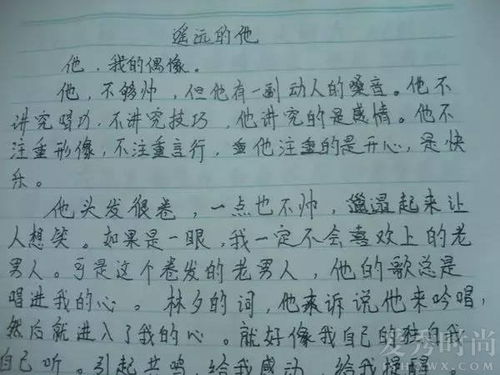 遥远的他
他，我的偶像。
他，不够帅，但他有一副动人的嗓音。他不
讲究唱功，不讲究技巧，他讲究的是感情。他不
注重形像，不注重言行，他注重的是开心，是快
乐。
他头发很卷，一点也不帅，逼逼起来让
人想笑。如果是一眼，我一定不会喜欢上的老
男人。可是这个卷发的老男人，他的歌总是
唱进我的心。林夕的词，他来诉说他来吟唱，
然后就进入了我的心。就好像我自己的独白我
自己听。引起共鸣，给我感动，给我提醒。
美秀时尚
YXWX.COM